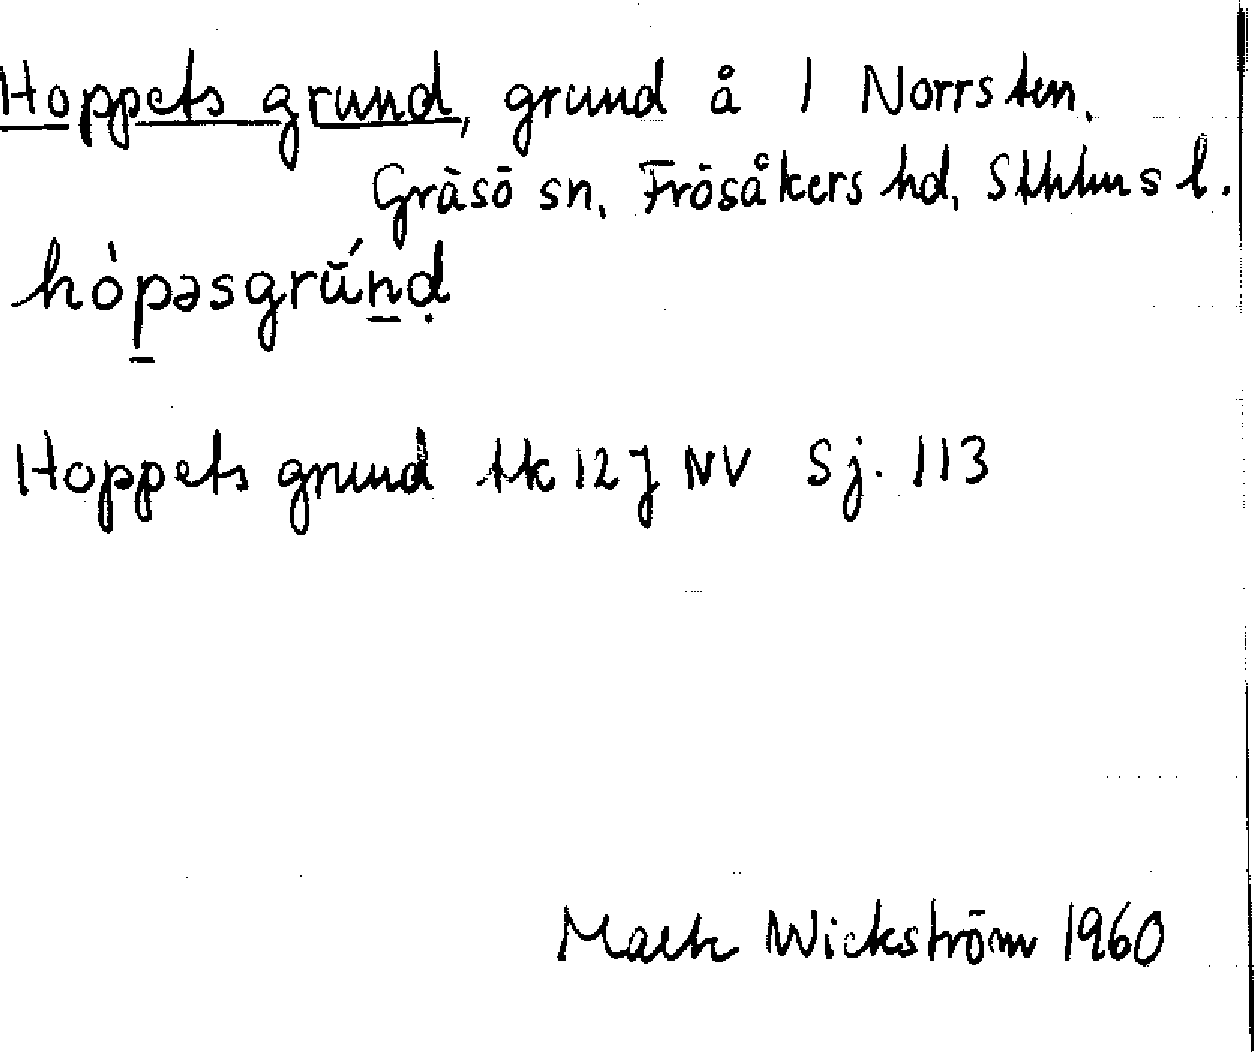 Hoppets grund, grund å 1 Norrsten,
Gräsö sn, Frösåkers hd, Sthlms l.
hópəsgrŭ́nḍ
Hoppets grund tk 12 J NV Sj. 113
Wickström 1960